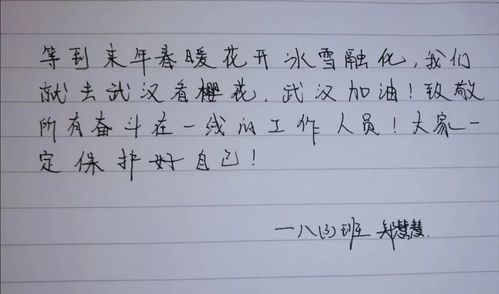 等到来年春暖花开冰雪融化,我们
就去武汉看樱花,武汉加油!致敬
所有奋斗在一线的工作人员!大家一
定保护好自己!
一八(3)班 郑慧慧